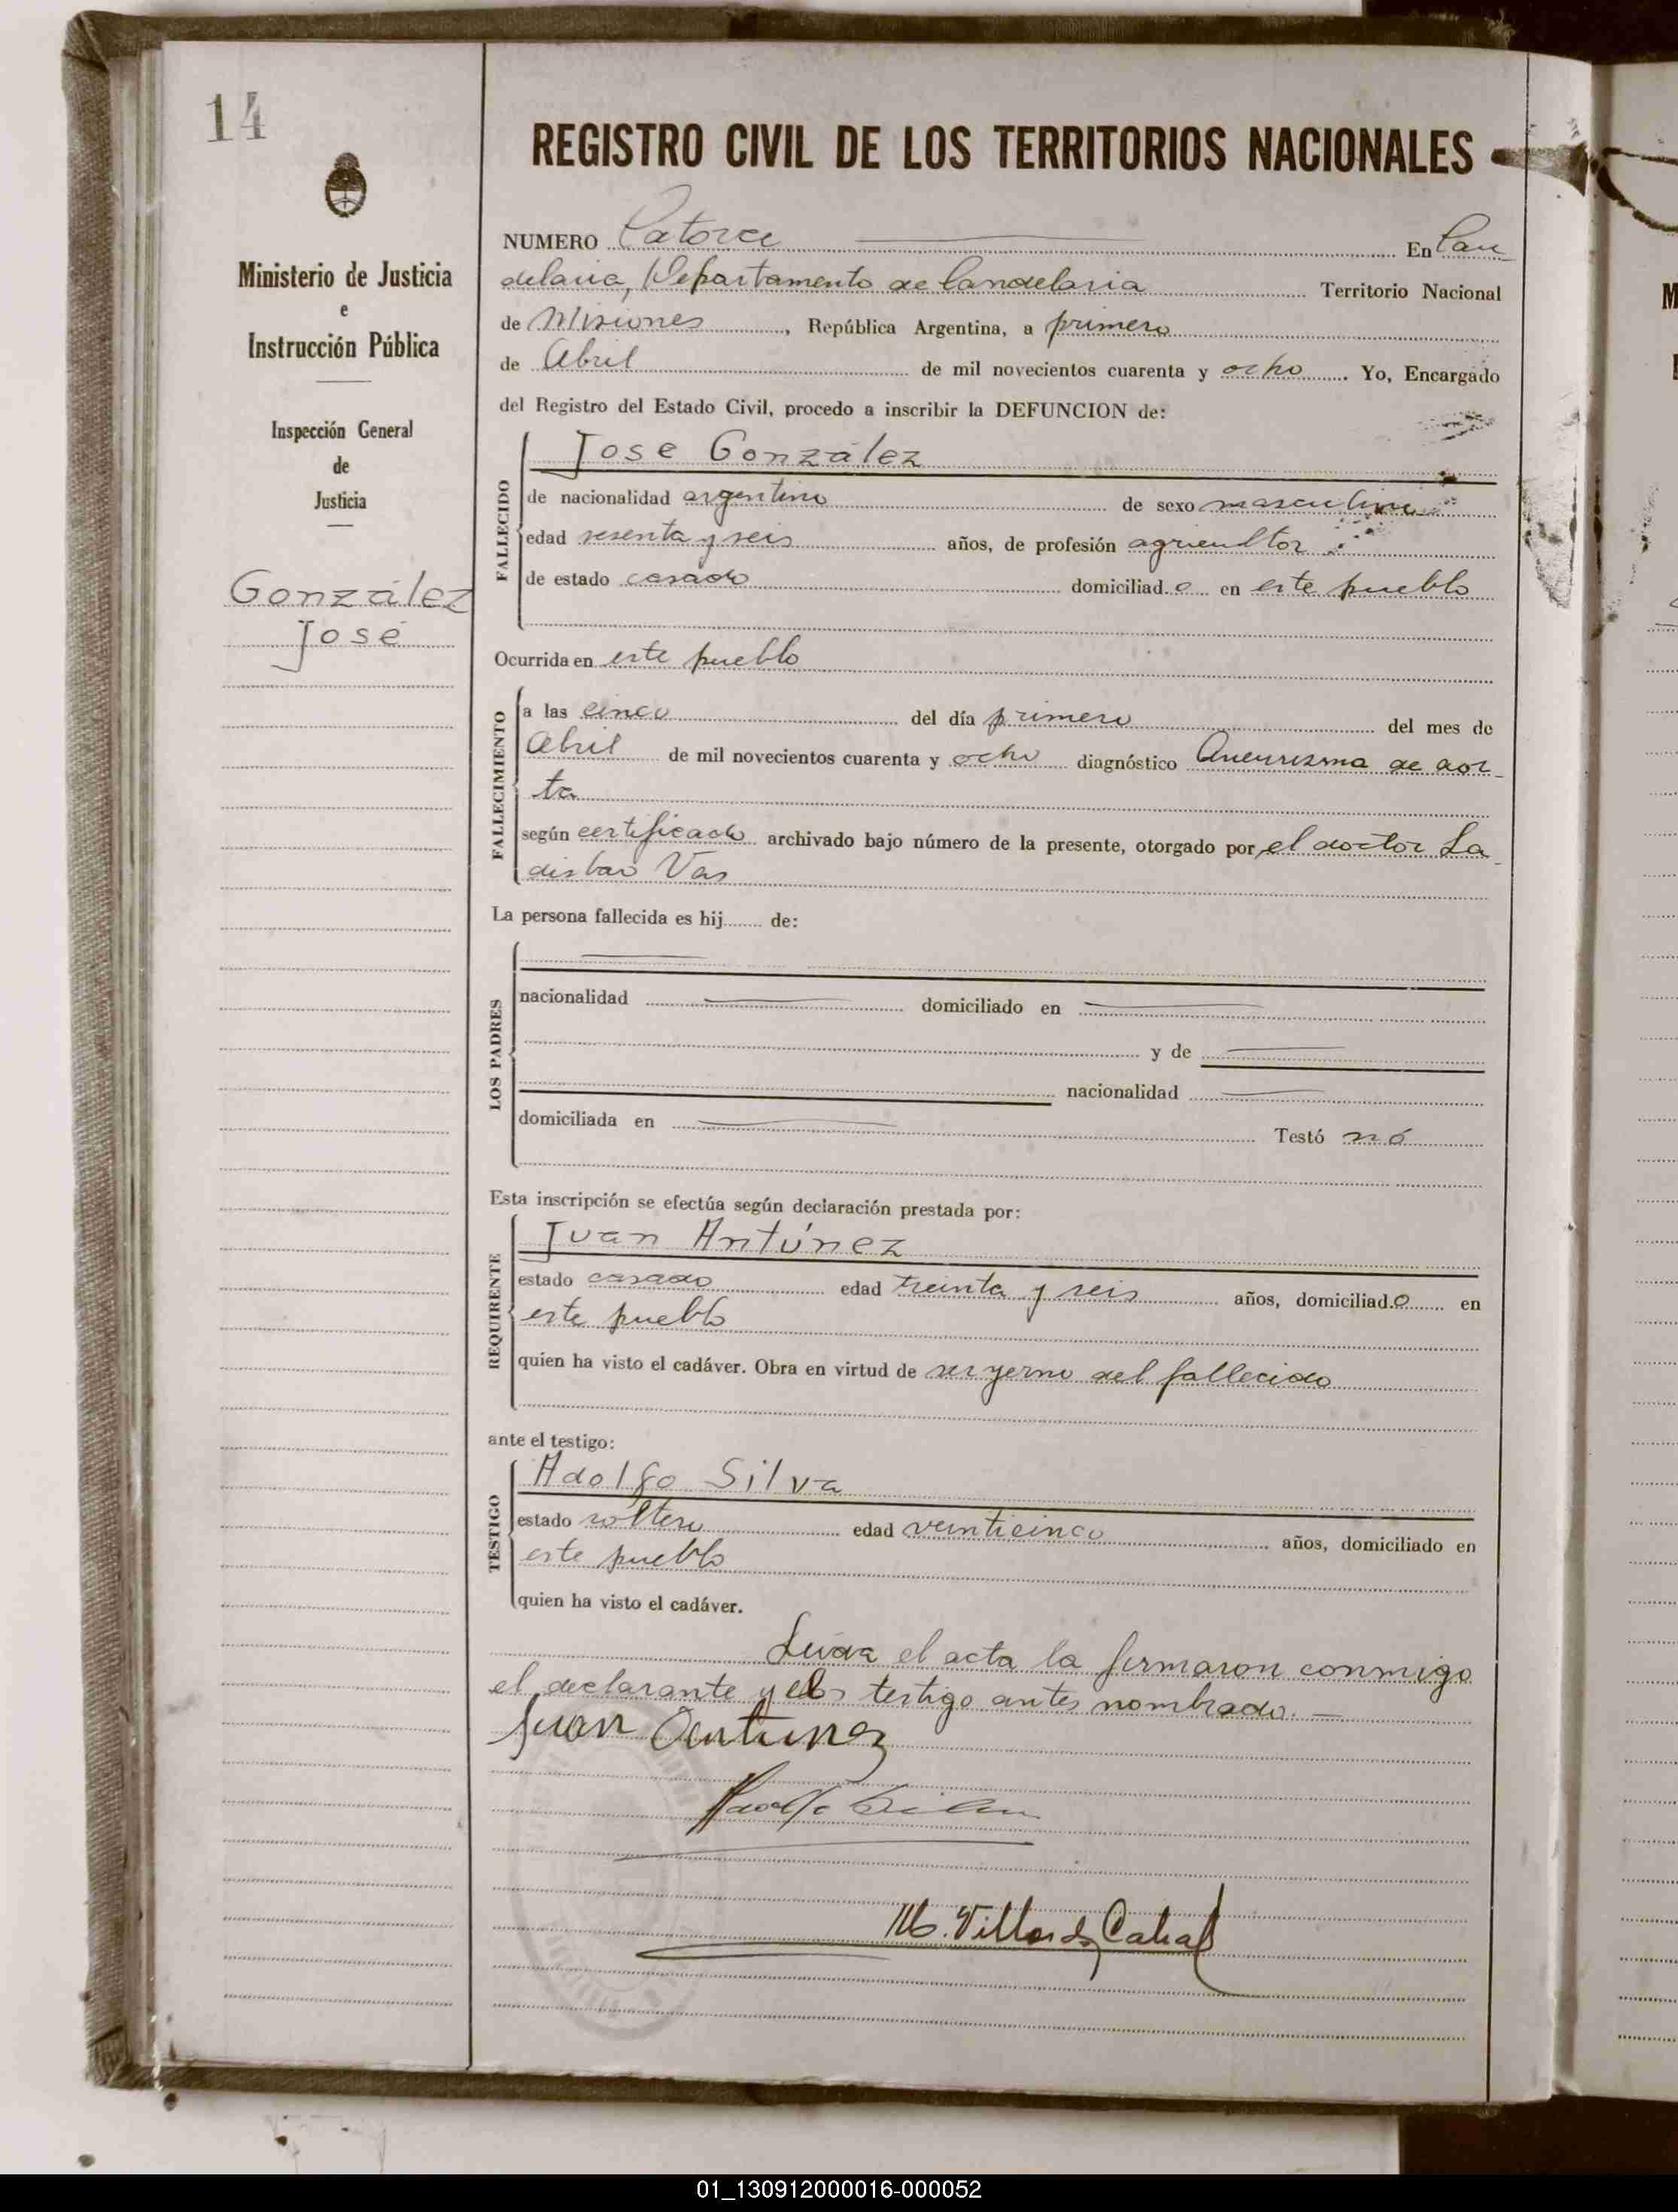 14
Ministerio de Justicia
e
Instrucción Pública
Inspección General
de
Justicia
González
José
REGISTRO CIVIL DE LOS TERRITORIOS NACIONALES
NUMERO Catorce En Can
delaria, Departamento de Candelaria Territorio Nacional
de Misiones, República Argentina, a primero
de Abril de mil novecientos cuarenta y ocho. Yo, Encargado
del Registro del Estado Civil, procedo a inscribir la DEFUNCION de:
FALLECIDO
Jose González
de nacionalidad argentino de sexo masculino
edad sesenta y seis años, de profesión agricultor
de estado casado domiciliad o en este pueblo
Ocurrida en este pueblo
FALLECIMIENTO
a las cinco del día primero del mes de
Abril de mil novecientos cuarenta y ocho diagnóstico Aneurisma de aor-
ta
según certificado archivado bajo número de la presente, otorgado por el doctor La-
dislao Vas
La persona fallecida es hij de:
LOS PADRES
nacionalidad domiciliado en
y de
nacionalidad
domiciliada en Testó nó
Esta inscripción se efectúa según declaración prestada por:
REQUIRENTE
Juan Antúnez
estado casado edad treinta y seis años, domiciliad o en
este pueblo
quien ha visto el cadáver. Obra en virtud de ser yerno del fallecido
ante el testigo:
TESTIGO
Adolfo Silva
estado soltero edad veinticinco años, domiciliado en
este pueblo
quien ha visto el cadáver.
Leída el acta la firmaron conmigo
el declarante y el testigo antes nombrado. —
Juan Antunez
Adolfo Silva
M. Villarda Cabral
01_130912000016-000052